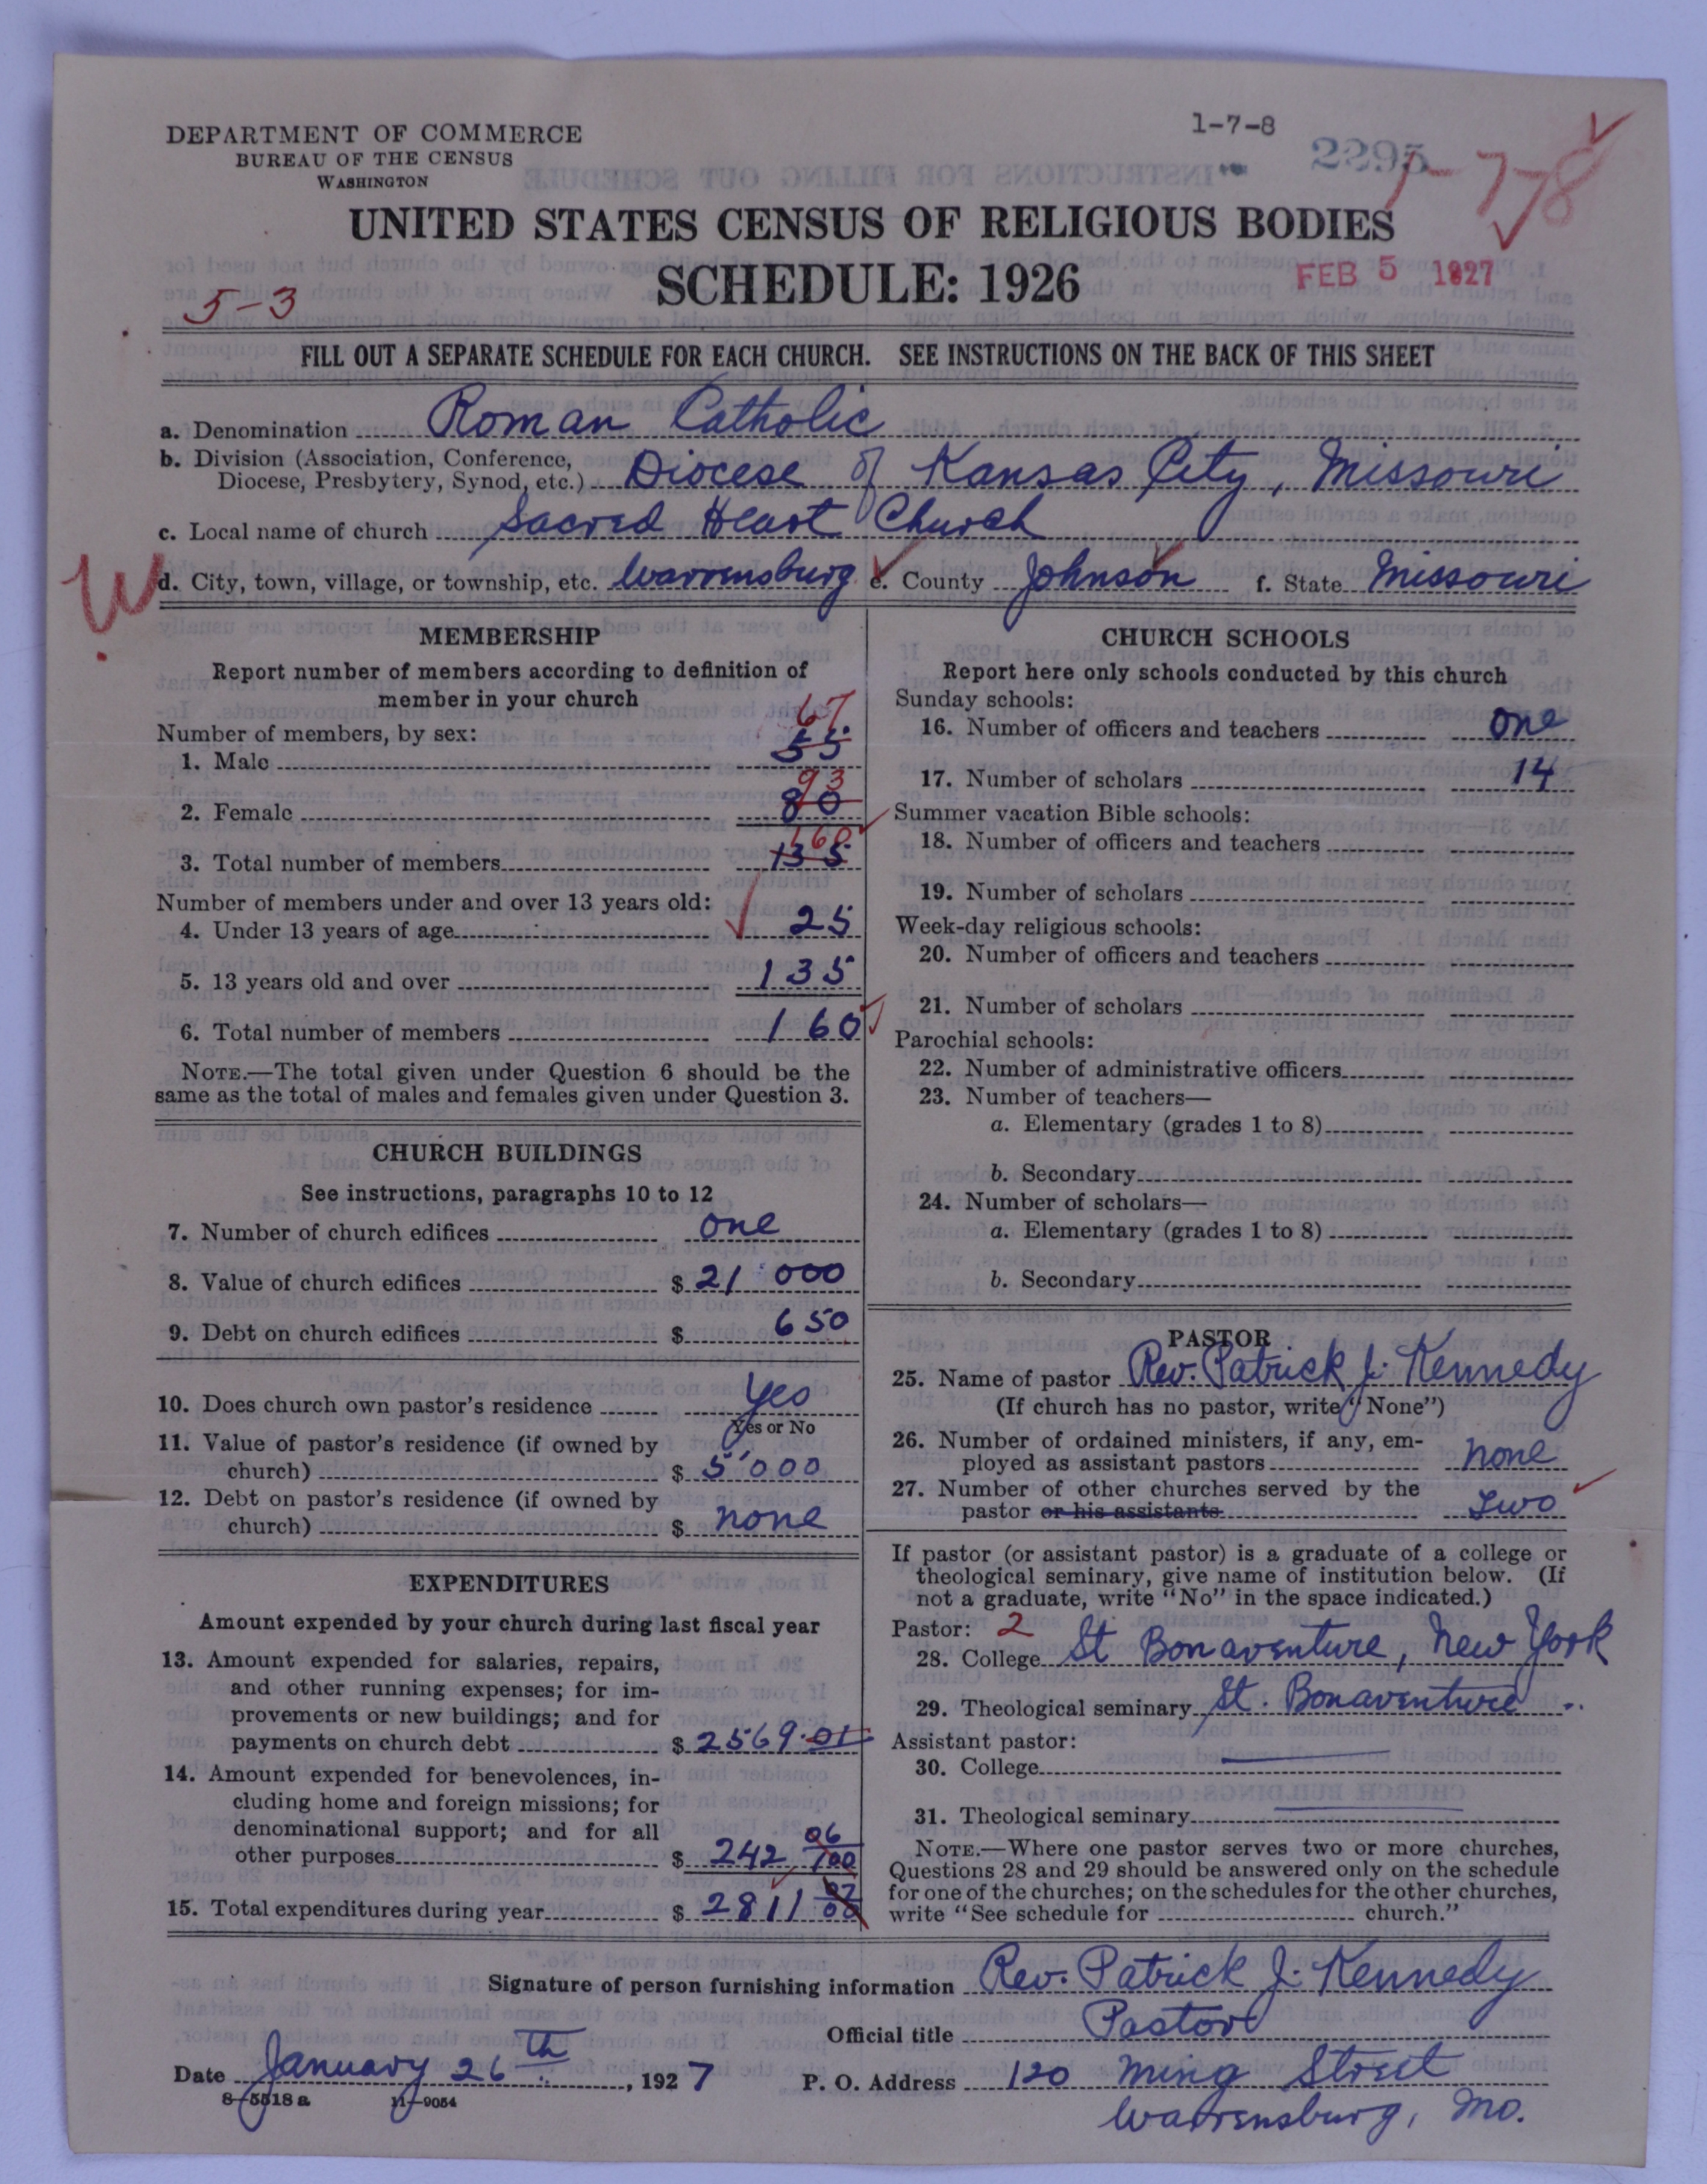 DEPARTMENT OF COMMERCE
BUREAU OF THE CENSUS
WASHINGTON
1-7-8
2295
1-7-8
UNITED STATES CENSUS OF RELIGIOUS BODIES
SCHEDULE: 1926
FEB 5 1927
5-3
FILL OUT A SEPARATE SCHEDULE FOR EACH CHURCH. SEE INSTRUCTIONS ON THE BACK OF THIS SHEET
a. Denomination Roman Catholic
b. Division (Association, Conference,
Diocese, Presbytery, Synod, etc.) Diocese of Kansas City, Missouri
c. Local name of church Sacred Heart Church
W
d. City, town, village, or township, etc. Warrensburg e. County Johnson f. State Missouri
MEMBERSHIP
Report number of members according to definition of
member in your church
Number of members, by sex:
67
1. Male 55
93
2. Female 80
160
3. Total number of members 135
Number of members under and over 13 years old:
4. Under 13 years of age 25
5. 13 years old and over 135
6. Total number of members 160
NOTE.—The total given under Question 6 should be the
same as the total of males and females given under Question 3.
CHURCH BUILDINGS
See instructions, paragraphs 10 to 12
7. Number of church edifices one
8. Value of church edifices $ 21 000
9. Debt on church edifices $ 650
10. Does church own pastor's residence yes
Yes or No
11. Value of pastor's residence (if owned by
church) $ 5000
12. Debt on pastor's residence (if owned by
church) $ none
EXPENDITURES
Amount expended by your church during last fiscal year
13. Amount expended for salaries, repairs,
and other running expenses; for im-
provements or new buildings; and for
payments on church debt $ 2569.01
14. Amount expended for benevolences, in-
cluding home and foreign missions; for
denominational support; and for all
other purposes $ 242 06/100
15. Total expenditures during year $ 2811 07/00
CHURCH SCHOOLS
Report here only schools conducted by this church
Sunday schools:
16. Number of officers and teachers one
17. Number of scholars 14
Summer vacation Bible schools:
18. Number of officers and teachers
19. Number of scholars
Week-day religious schools:
20. Number of officers and teachers
21. Number of scholars
Parochial schools:
22. Number of administrative officers
23. Number of teachers—
a. Elementary (grades 1 to 8)
b. Secondary
24. Number of scholars—
a. Elementary (grades 1 to 8)
b. Secondary
PASTOR
25. Name of pastor Rev. Patrick J. Kennedy
(If church has no pastor, write "None")
26. Number of ordained ministers, if any, em-
ployed as assistant pastors none
27. Number of other churches served by the
pastor or his assistants two
If pastor (or assistant pastor) is a graduate of a college or
theological seminary, give name of institution below. (If
not a graduate, write "No" in the space indicated.)
Pastor: 2
28. College St Bonaventure, New York
29. Theological seminary St. Bonaventure
Assistant pastor:
30. College
31. Theological seminary
NOTE.—Where one pastor serves two or more churches,
Questions 28 and 29 should be answered only on the schedule
for one of the churches; on the schedules for the other churches,
write "See schedule for church."
Signature of person furnishing information Rev. Patrick J. Kennedy
Official title Pastor
Date January 26th, 1927 P. O. Address 120 Ming Street
8-5518 a 11-9054
Warrensburg, Mo.